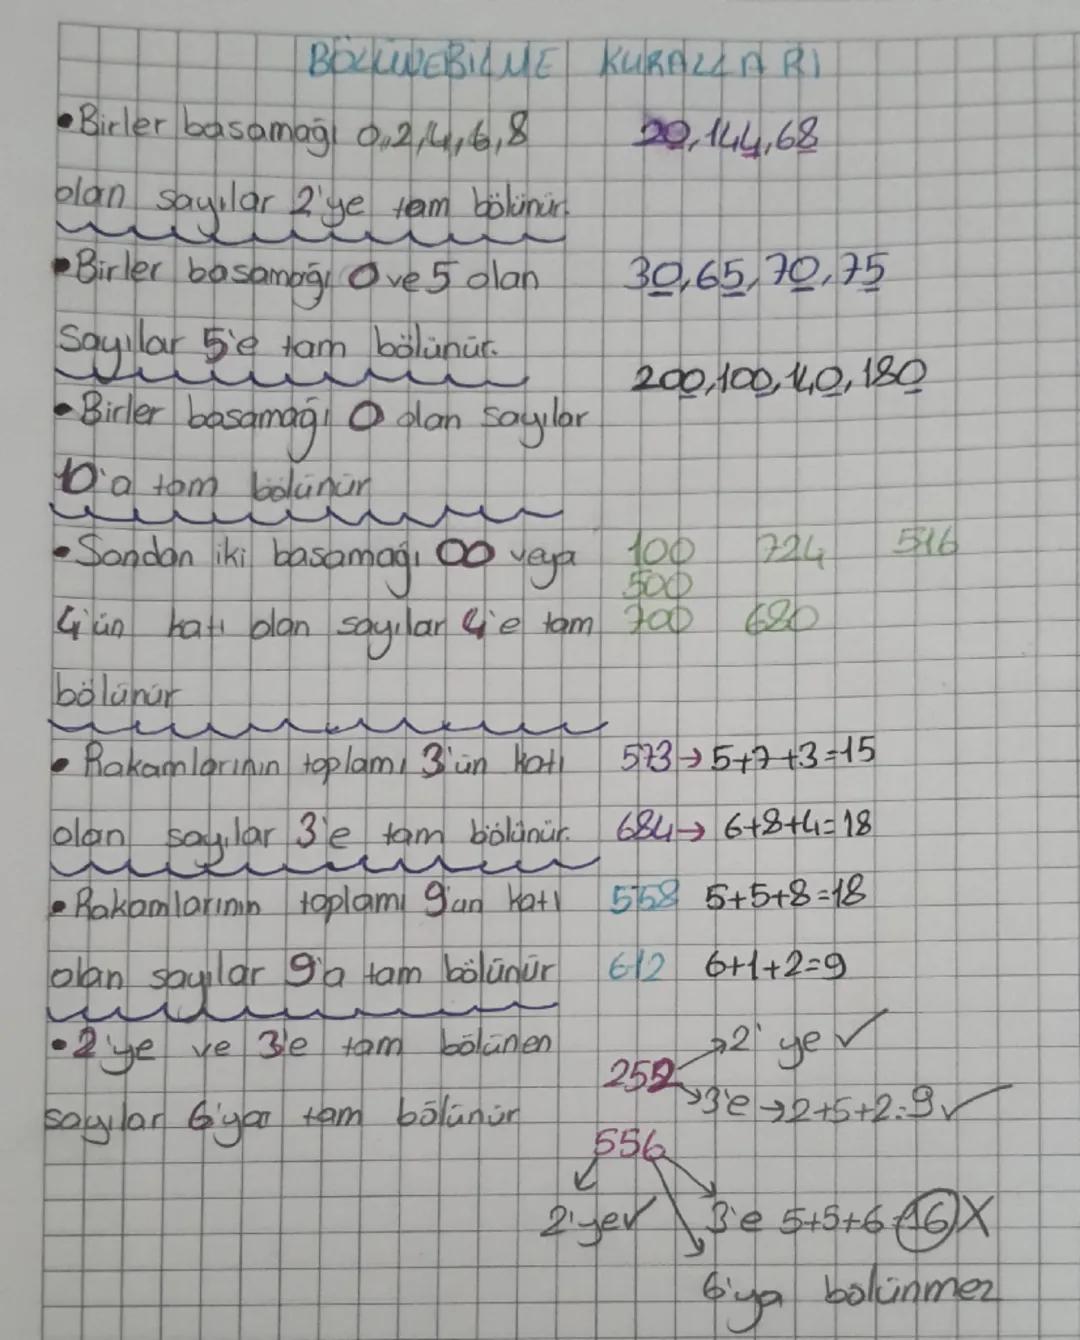 BÖLÜNEBİLME KURALLARI
• Birler basamağı 0,2,4,6,8 20,144,68
olan sayılar 2'ye tam bölünür.
• Birler basamağı 0 ve 5 olan 30,65,70,75
sayılar 5'e tam bölünür.
200,100,140,180
• Birler basamağı 0 olan sayılar
10'a tam bölünür
• Sondan iki basamağı 00 veya 100 724 516
500
4'ün katı olan sayılar 4'e tam 700 680
bölünür
• Rakamlarının toplamı 3'ün katı 573 → 5+7+3=15
olan sayılar 3'e tam bölünür. 684 → 6+8+4=18
• Rakamlarının toplamı 9'un katı 558 5+5+8=18
olan sayılar 9'a tam bölünür 612 6+1+2=9
• 2'ye ve 3'e tam bölünen 2'ye ✓
252
sayılar 6'ya tam bölünür 3'e → 2+5+2=9 ✓
556
2'ye ✓ 3'e 5+5+6=16 X
6'ya bölünmez